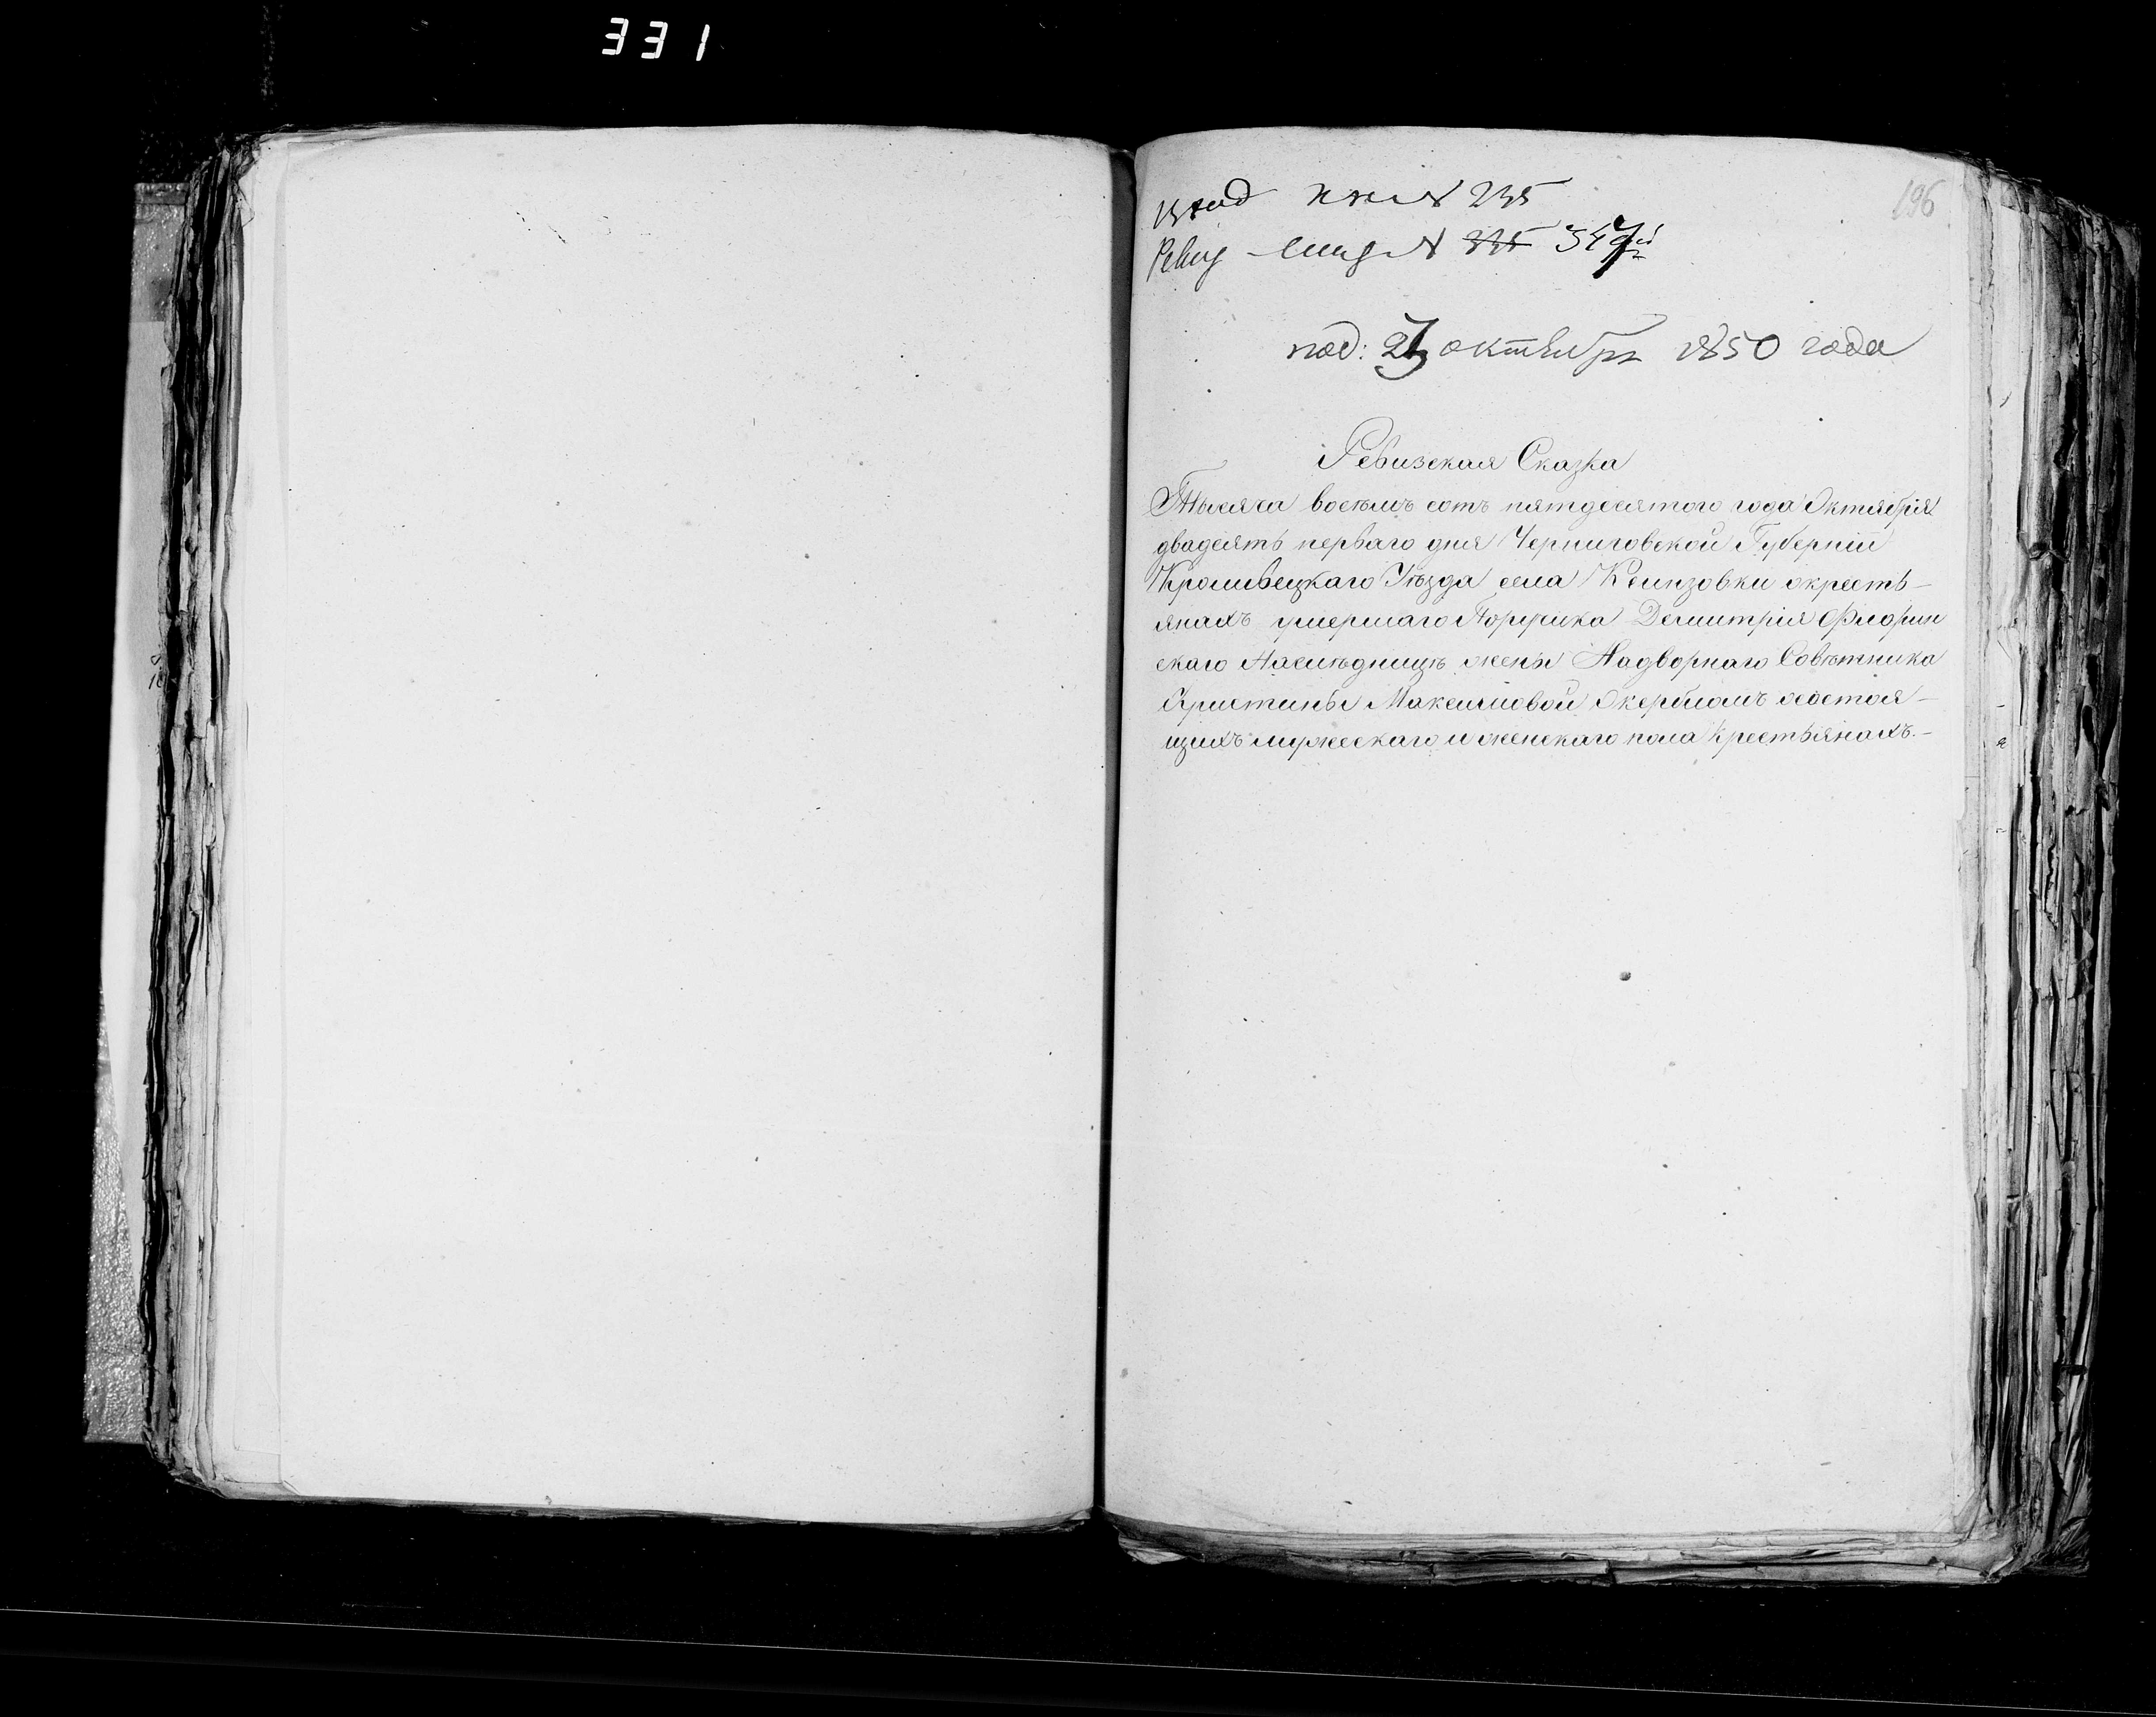 331
196
Вход № 235
Ревиз № 235 347
под: 27 октября 1850 года
Ревизская Сказка
Тысяча восемь сотъ пятдесятого года Октября
двадеять перваго дня Черниговской Губерніи
Кролевецкаго Уѣзда села Ксензовки окресть-
янахъ умершаго Поручика Демитрія Флорин
скаго Наслѣдницѣ жены Надворнаго Совѣтника
Христины Максимовой Окербломъ осостоя-
щихъ мужескаго и женскаго пола крестьянахъ.-